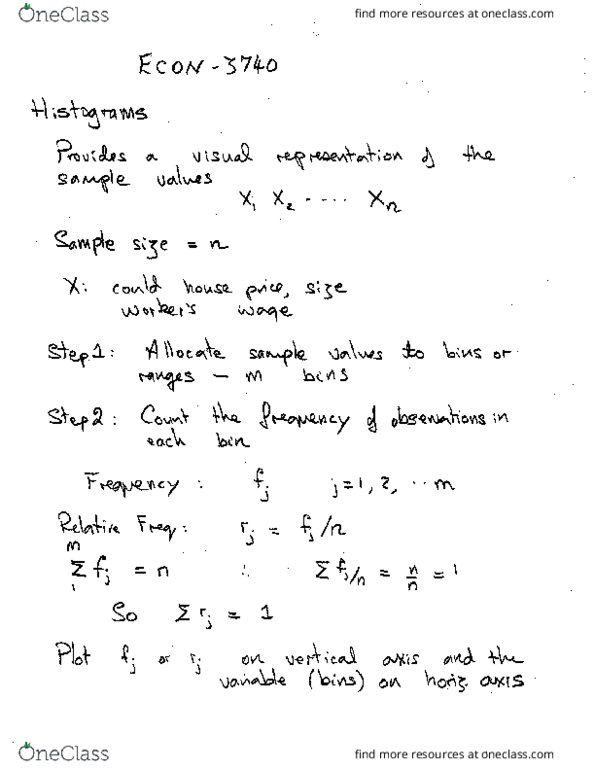 OneClass
find more resources at oneclass.com
ECON - 3740
Histograms
Provides a visual representation of the
sample values
X₁ X₂ ····· Xₙ
Sample size = n
X: could house price, size
worker's wage
Step 1: Allocate sample values to bins or
ranges - m bins
Step 2: Count the frequency of observations in
each bin
Frequency : fⱼ j = 1, 2, ·· m
Relative Freq: rⱼ = fⱼ/n
m
Σ fⱼ = n ∴ Σ fⱼ/n = n/n = 1
1
So Σ rⱼ = 1
Plot fⱼ or rⱼ on vertical axis and the
variable (bins) on horiz axis.
OneClass
find more resources at oneclass.com